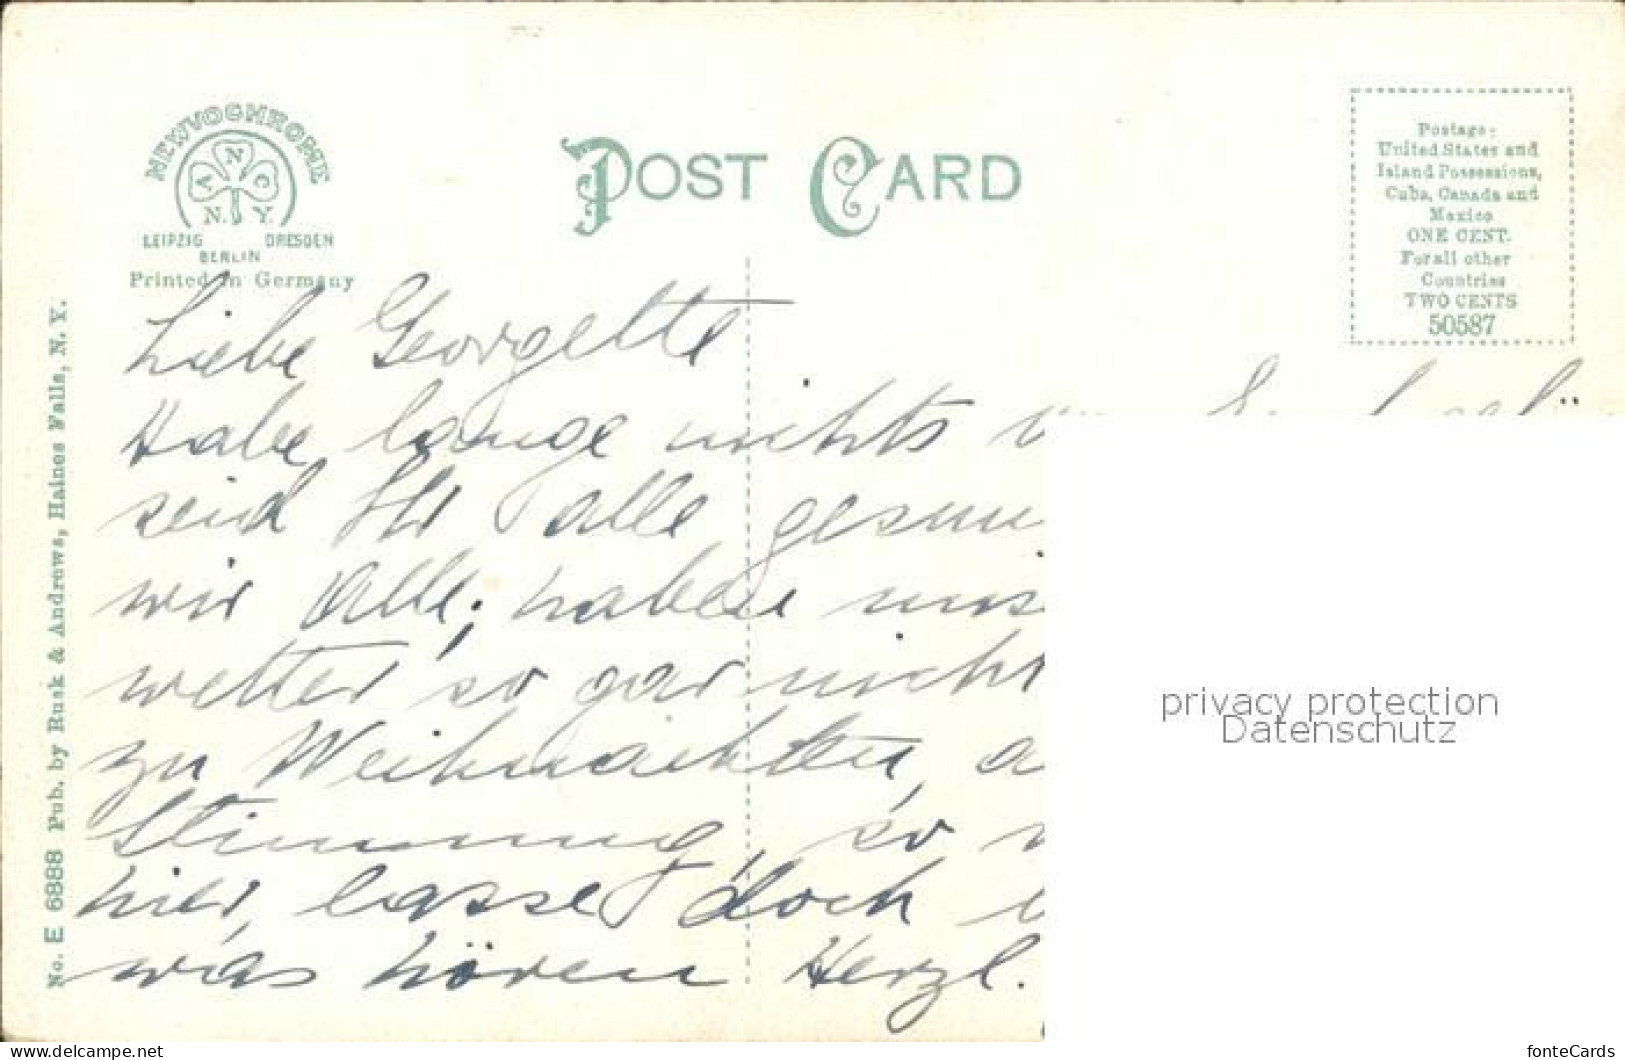 NEWVOCHROME
A N C
N. Y.
LEIPZIG DRESDEN
BERLIN
Printed in Germany
POST CARD
Postage:
United States and
Island Possessions,
Cuba, Canada and
Mexico
ONE CENT.
For all other
Countries
TWO CENTS
50587
No. E 6888 Pub. by Rusk & Andrews, Haines Falls, N. Y.
Liebe Georgette
Habe lange nichts
seid Ihr alle
wir Alle, haben
wetter so gar nicht
zu Weihnachten,
Stimmung, so
hier, lasse doch
was hören Herzl.
privacy protection
Datenschutz
delcampe.net
fonteCards